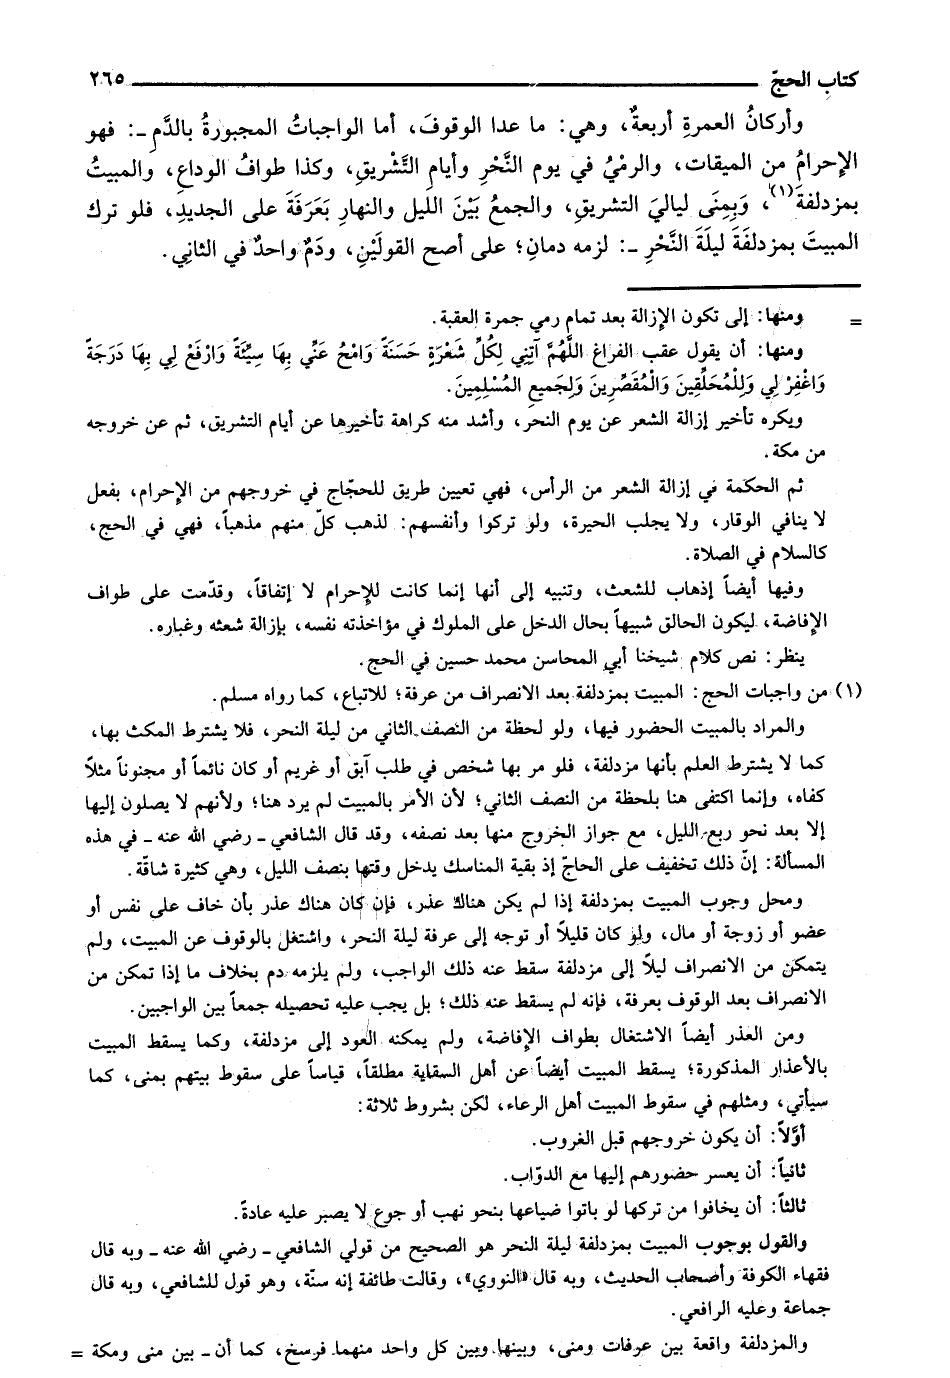 كتاب الحجّ ٢٦٥
وأركانُ العمرةِ أربعةٌ، وهي: ما عدا الوقوفَ، أما الواجباتُ المجبورةُ بالدَّم ـ: فهو
الإحرامُ من الميقات، والرمْيُ في يوم النَّحْرِ وأيامِ التَّشْريقِ، وكذا طوافُ الوداعِ، والمبيتُ
بمزدلفةَ(١)، وَبِمِنَى لياليَ التشريقِ، والجمعُ بَيْنَ الليل والنهارِ بَعَرَفَةَ على الجديدِ، فلو ترك
المبيتَ بمزدلفَةَ ليلَةَ النَّحْرِ ـ: لزمه دمانِ؛ على أصح القولَيْنِ، ودَمٌ واحدٌ في الثانِي.
= ومنها: إلى تكون الإزالة بعد تمام رمي جمرة العقبة.
ومنها: أن يقول عقب الفراغ اللَّهُمَّ آتِنِي لِكُلِّ شَعْرَةٍ حَسَنَةً وَامْحُ عَنِّي بِهَا سِيِّئَةً وَارْفَعْ لِي بِهَا دَرَجَةً
وَاغْفِرْ لِي وَلِلْمُحَلِّقِينَ وَالْمُقَصِّرِينَ وَلِجَمِيعِ المُسْلِمِينَ.
ويكره تأخير إزالة الشعر عن يوم النحر، وأشد منه كراهة تأخيرها عن أيام التشريق، ثم عن خروجه
من مكة.
ثم الحكمة في إزالة الشعر من الرأس، فهي تعيين طريق للحجّاج في خروجهم من الإحرام، بفعل
لا ينافي الوقار، ولا يجلب الحيرة، ولو تركوا وأنفسهم: لذهب كلّ منهم مذهباً، فهي في الحج،
كالسلام في الصلاة.
وفيها أيضاً إذهاب للشعث، وتنبيه إلى أنها إنما كانت للإحرام لا إتفاقاً، وقدّمت على طواف
الإفاضة، ليكون الحالق شبيهاً بحال الدخل على الملوك في مؤاخذته نفسه، بإزالة شعثه وغباره.
ينظر: نص كلام شيخنا أبي المحاسن محمد حسين في الحج.
(١) من واجبات الحج: المبيت بمزدلفة بعد الانصراف من عرفة؛ للاتباع، كما رواه مسلم.
والمراد بالمبيت الحضور فيها، ولو لحظة من النصف الثاني من ليلة النحر، فلا يشترط المكث بها،
كما لا يشترط العلم بأنها مزدلفة، فلو مر بها شخص في طلب آبق أو غريم أو كان نائماً أو مجنوناً مثلاً
كفاه، وإنما اكتفى هنا بلحظة من النصف الثاني؛ لأن الأمر بالمبيت لم يرد هنا؛ ولأنهم لا يصلون إليها
إلا بعد نحو ربع الليل، مع جواز الخروج منها بعد نصفه، وقد قال الشافعي ـ رضي الله عنه ـ في هذه
المسألة: إنّ ذلك تخفيف على الحاجّ إذ بقية المناسك يدخل وقتها بنصف الليل، وهي كثيرة شاقّة.
ومحل وجوب المبيت بمزدلفة إذا لم يكن هناك عذر، فإن كان هناك عذر بأن خاف على نفس أو
عضو أو زوجة أو مال، ولو كان قليلاً أو توجه إلى عرفة ليلة النحر، واشتغل بالوقوف عن المبيت، ولم
يتمكن من الانصراف ليلاً إلى مزدلفة سقط عنه ذلك الواجب، ولم يلزمه دم بخلاف ما إذا تمكن من
الانصراف بعد الوقوف بعرفة، فإنه لم يسقط عنه ذلك؛ بل يجب عليه تحصيله جمعاً بين الواجبين.
ومن العذر أيضاً الاشتغال بطواف الإفاضة، ولم يمكنه العود إلى مزدلفة، وكما يسقط المبيت
بالأعذار المذكورة؛ يسقط المبيت أيضاً عن أهل السقاية مطلقاً، قياساً على سقوط بيتهم بمنى، كما
سيأتي، ومثلهم في سقوط المبيت أهل الرعاء، لكن بشروط ثلاثة:
أوَّلاً: أن يكون خروجهم قبل الغروب.
ثانياً: أن يعسر حضورهم إليها مع الدوّاب.
ثالثاً: أن يخافوا من تركها لو باتوا ضياعها بنحو نهب أو جوع لا يصبر عليه عادةً.
والقول بوجوب المبيت بمزدلفة ليلة النحر هو الصحيح من قولي الشافعي ـ رضي الله عنه ـ وبه قال
فقهاء الكوفة وأصحاب الحديث، وبه قال «النووي»، وقالت طائفة إنه سنّة، وهو قول للشافعي، وبه قال
جماعة وعليه الرافعي.
والمزدلفة واقعة بين عرفات ومنى، وبينها وبين كل واحد منهما فرسخ، كما أن ـ بين منى ومكة =